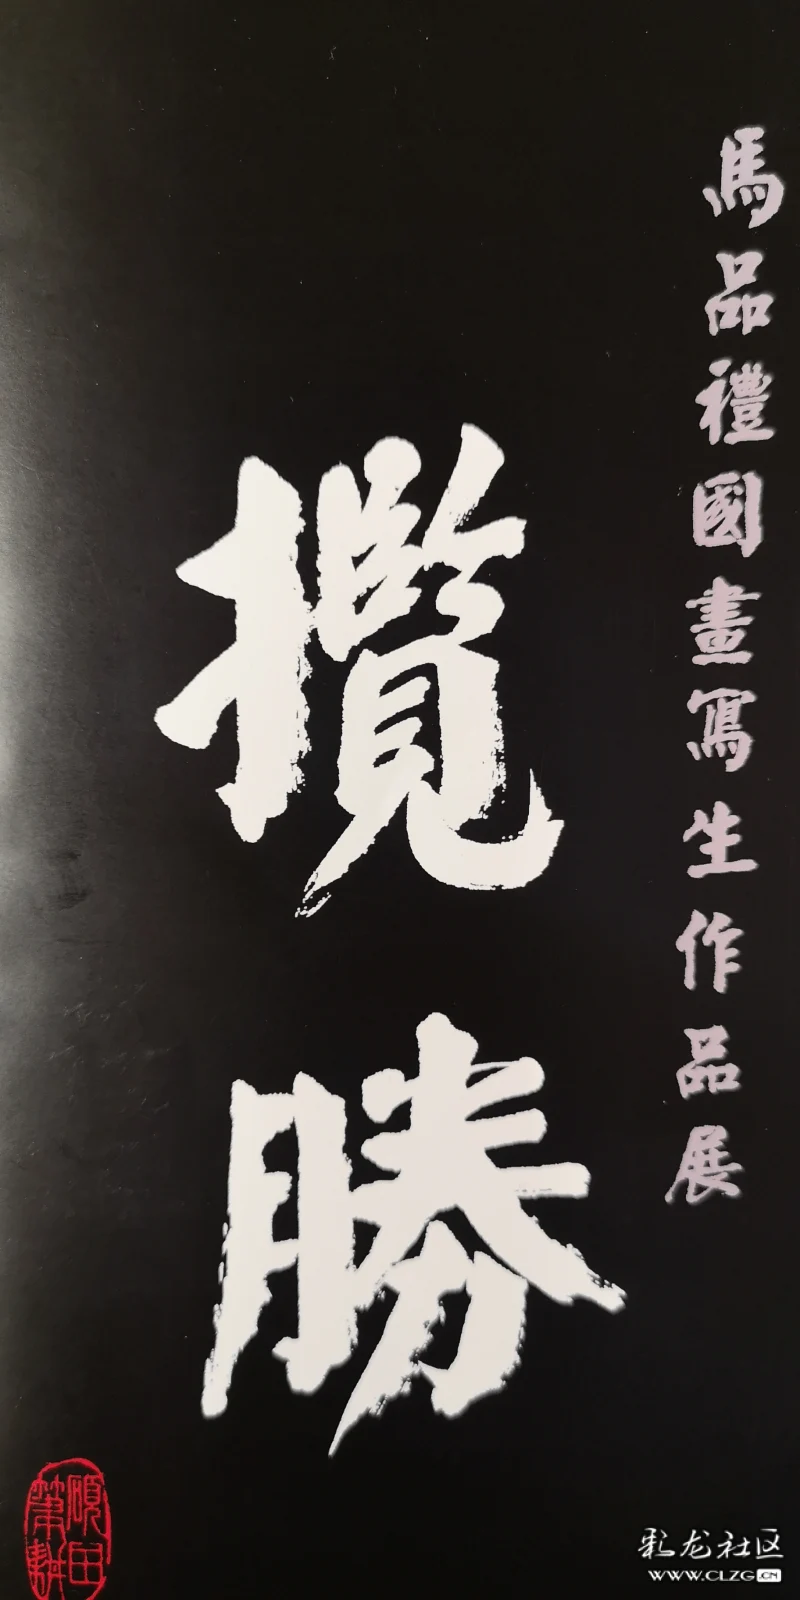 馬品禮國畫寫生作品展
攬勝
硯田
筆耕
彩龙社区
WWW.CLZG.CN